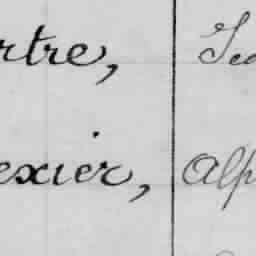 rtre, Jea
exier, Alp